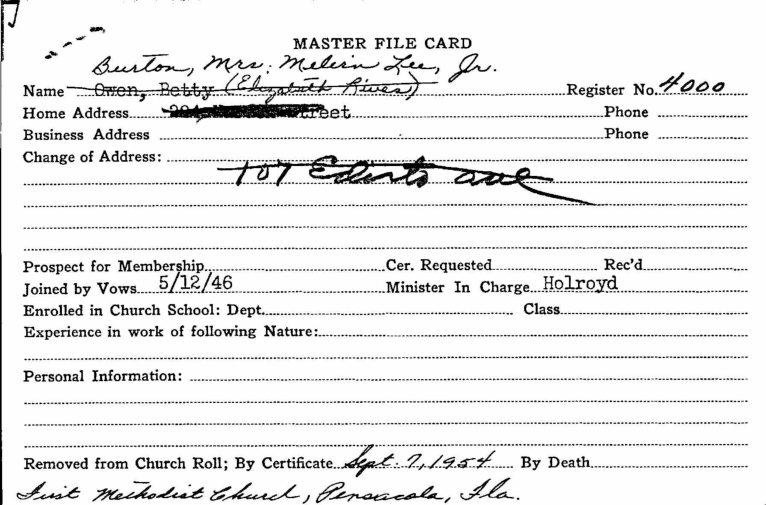 MASTER FILE CARD
Burton, Mrs. Melvin Lee, Jr.
Name Owen, Betty (Elizabeth Rives) Register No. 4000
Home Address Street Phone
Business Address Phone
Change of Address:
107 Ave
Prospect for Membership Cer. Requested Rec'd
Joined by Vows 5/12/46 Minister In Charge Holroyd
Enrolled in Church School: Dept. Class
Experience in work of following Nature:
Personal Information:
Removed from Church Roll; By Certificate Sept. 7, 1954 By Death
First Methodist Church, Pensacola, Fla.